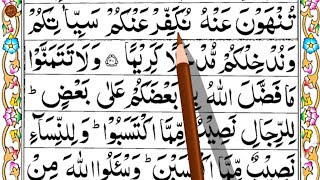 تُنْهَوْنَ عَنْهُ نُكَفِّرْ عَنْكُمْ سَيِّاٰتِكُمْ
وَنُدْخِلْكُمْ كَرِيْمًا ۝ وَلَا تَتَمَنَّوْا
مَا فَضَّلَ اللّٰهُ بَعْضَكُمْ عَلٰى بَعْضٍ ؕ
لِلرِّجَالِ نَصِيْبٌ مِّمَّا اكْتَسَبُوْا ؕ وَلِلنِّسَآءِ
نَصِيْبٌ مِّمَّا اكْتَسَبْنَ ؕ وَسْئَلُوا اللّٰهَ مِنْ